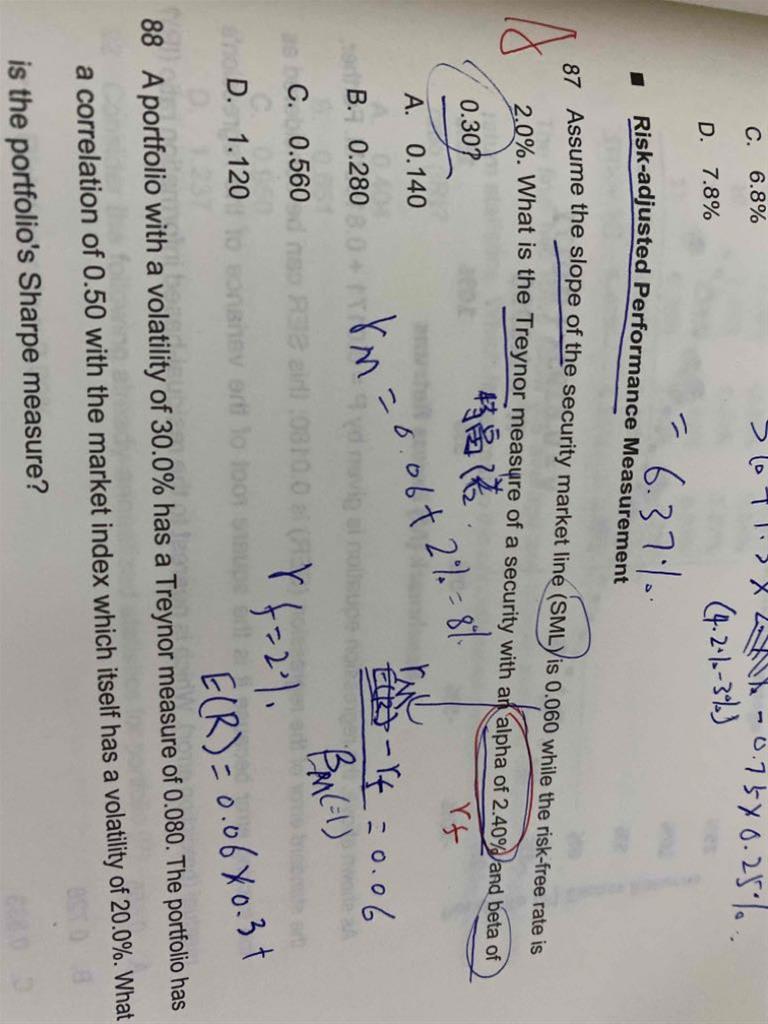 C. 6.8%
D. 7.8%
= 6.37%.
(4.2%-3%)
- 0.75 × 0.25%.
■ Risk-adjusted Performance Measurement
87 Assume the slope of the security market line (SML) is 0.060 while the risk-free rate is
2.0%. What is the Treynor measure of a security with an alpha of 2.40% and beta of
0.30?
rf
A. 0.140
B. 0.280
C. 0.560
D. 1.120
rM = 6.06 + 2% = 8%
rM
E(R) - rf = 0.06
βM(=1)
rf = 2%
E(R) = 0.06 × 0.3 +
88 A portfolio with a volatility of 30.0% has a Treynor measure of 0.080. The portfolio has
a correlation of 0.50 with the market index which itself has a volatility of 20.0%. What
is the portfolio's Sharpe measure?